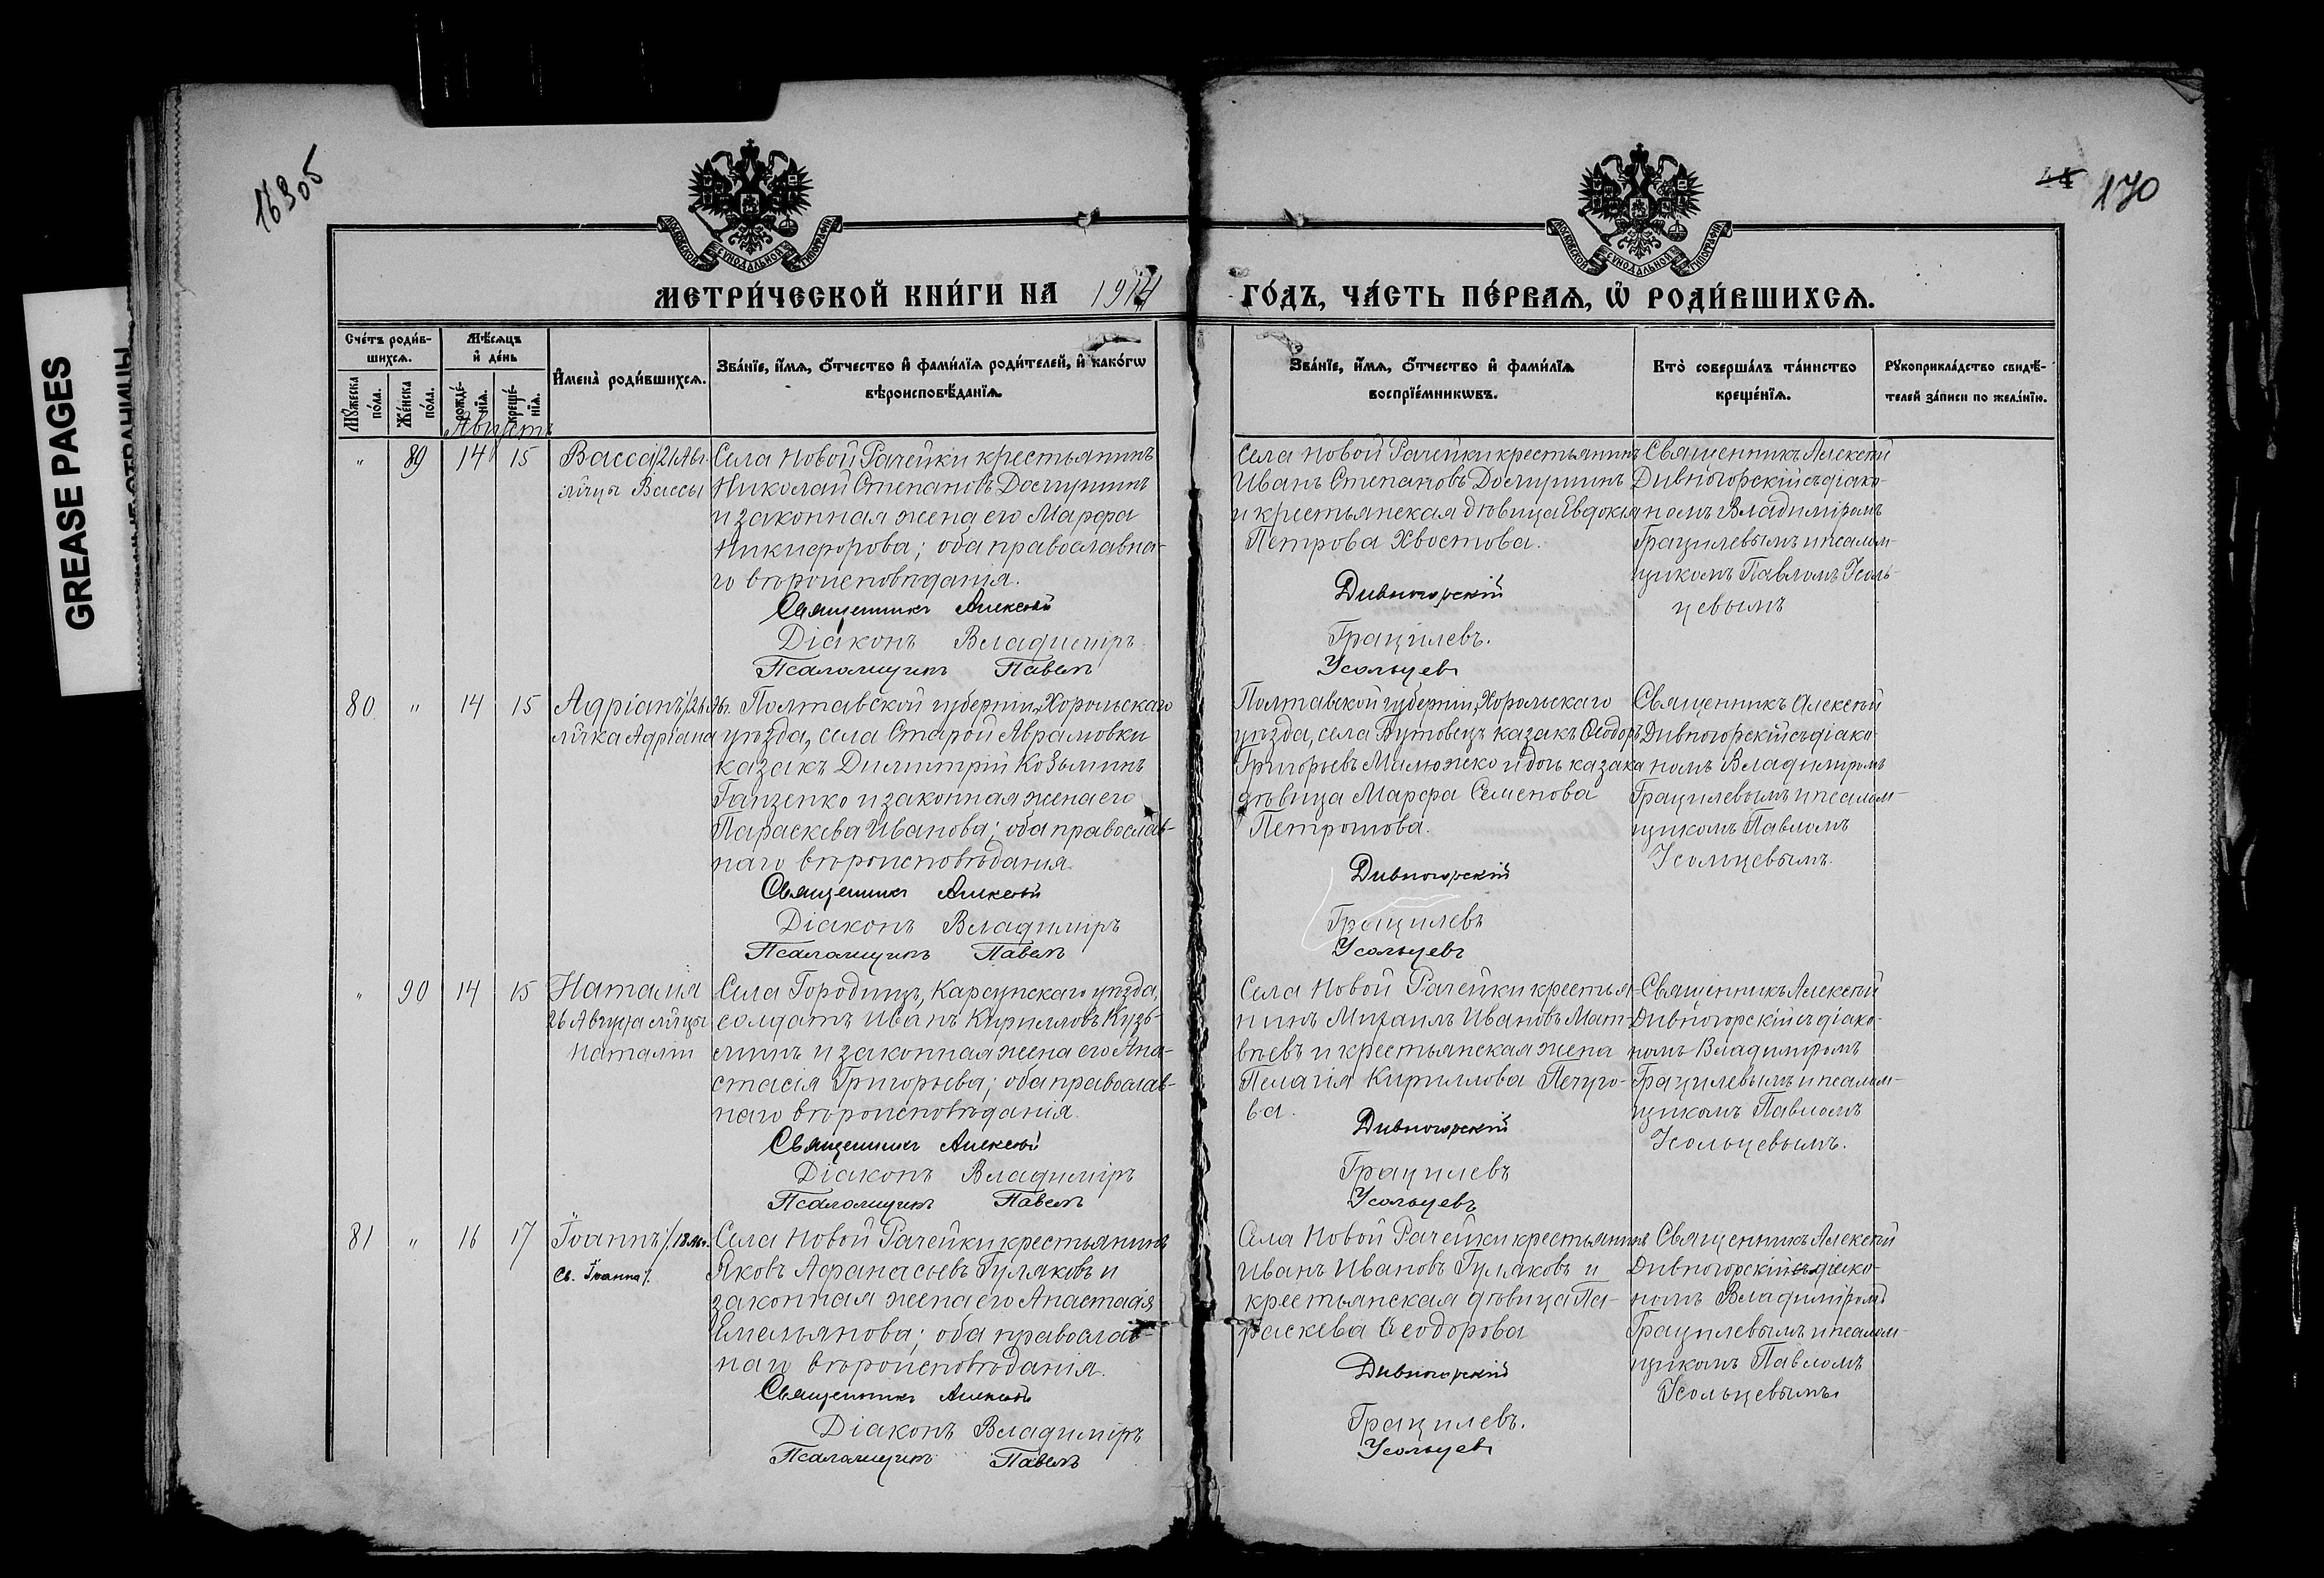 169об
170
GREASE PAGES
МОСКОВСКОЙ СѴНОДАЛЬНОЙ ТИПОГРАФІИ
МОСКОВСКОЙ СѴНОДАЛЬНОЙ ТИПОГРАФІИ
МЕТРИ́ЧЕСКОЙ КНИ́ГИ НА 1914
ГО́ДЪ, ЧА́СТЬ ПЕ́РВАѦ, Ѡ҆ РОДИ́ВШИХСѦ.
Сче́тъ роди́в-
шихсѧ.
Мꙋ́жеска по́ла.
Же́нска по́ла.
Мѣ́сѧцъ
и҆ де́нь
рожде́-
нїѧ.
креще́-
нїѧ.
И҆мена̀ роди́вшихсѧ.
Зва́нїе, и҆́мѧ, ѻ҆́тчество и҆ фами́лїѧ роди́телей, и҆ како́гѡ
вѣроисповѣ́данїѧ.
Зва́нїе, и҆́мѧ, ѻ҆́тчество и҆ фами́лїѧ
воспрїе́мникѡвъ.
Кто̀ соверша́лъ та́инство
креще́нїѧ.
Рꙋкоприкла́дство свидѣ́-
телей за́писи по жела́нїю.
Августъ
" 89 14 15
Васса /21 Авг.
м҃цы Вассы
Села Новой Рачейки крестьянинъ
Николай Степановъ Досмушинъ
и законная жена его Марфа
Никифорова; оба православна-
го вѣроисповѣданія.
Священникъ Алексѣй
Діаконъ Владиміръ
Псаломщикъ Павелъ
Села Новой Рачейки крестьянинъ
Иванъ Степановъ Досмушинъ
и крестьянская дѣвица Евдокія
Петрова Хвостова.
Дивногорскій
Грацилевъ.
Усольцевъ
Священникъ Алексѣй
Дивногорскій съ діако-
номъ Владиміромъ
Грацилевымъ и псалом-
щикомъ Павломъ Усоль-
цевымъ
80 " 14 15
Адріанъ /26 Авг.
м҃чка Адріана
Полтавской губерніи, Хорольскаго
уѣзда, села Старой Аврамовки
казакъ Димитрій Козьминъ
Ганзенко и законная жена его
Параскева Иванова; оба православ-
наго вѣроисповѣданія.
Священникъ Алексѣй
Діаконъ Владиміръ
Псаломщикъ Павелъ
Полтавской губерніи, Хорольскаго
уѣзда, села казакъ Ѳеодоръ
Григорьевъ Малюжко и дочь казака
дѣвица Марфа Семенова
Петрошова.
Дивногорскій
Грацилевъ
Усольцевъ
Священникъ Алексѣй
Дивногорскій съ діако-
номъ Владиміромъ
Грацилевымъ и псалом-
щикомъ Павломъ
Усольцевымъ.
" 90 14 15
Наталія
26 Августа м҃цы
Наталіи
Села Городищъ, Карсунскаго уѣзда,
солдатъ Иванъ Кирилловъ Кузь-
минъ и законная жена его Ана-
стасія Григорьева; оба православ-
наго вѣроисповѣданія.
Священникъ Алексѣй
Діаконъ Владиміръ
Псаломщикъ Павелъ
Села Новой Рачейки крестья-
нинъ Михаилъ Ивановъ Мат-
вѣевъ и крестьянская жена
Пелагія Кириллова Печуго-
ва.
Дивногорскій
Грацилевъ
Усольцевъ
Священникъ Алексѣй
Дивногорскій съ діако-
номъ Владиміромъ
Грацилевымъ и псалом-
щикомъ Павломъ
Усольцевымъ.
81 " 16 17
Іоаннъ /18 Авг.
Св. Іоанна/.
Села Новой Рачейки крестьянинъ
Яковъ Афанасьевъ Гуляковъ и
законная жена его Анастасія
Емельянова; оба православ-
наго вѣроисповѣданія.
Священникъ Алексѣй
Діаконъ Владиміръ
Псаломщикъ Павелъ
Села Новой Рачейки крестьянинъ
Иванъ Ивановъ Гуляковъ и
крестьянская дѣвица Па-
раскева Ѳеодорова
Дивногорскій
Грацилевъ.
Усольцевъ
Священникъ Алексѣй
Дивногорскій съ діако-
номъ Владиміромъ
Грацилевымъ и псалом-
щикомъ Павломъ
Усольцевымъ.